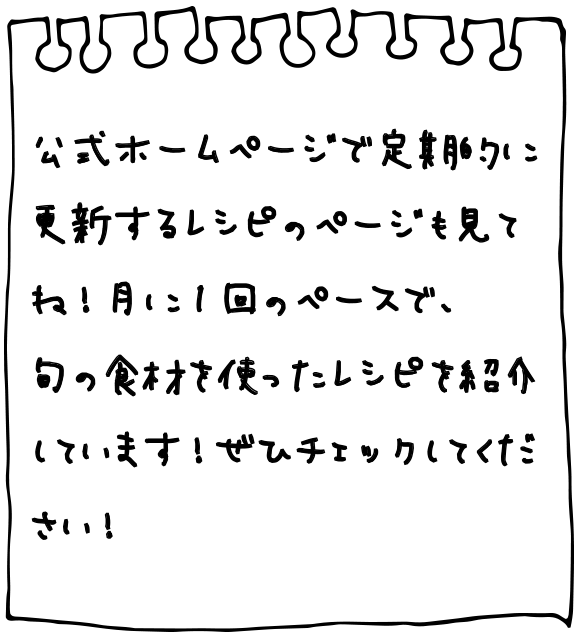 公式ホームページで定期的に
更新するレシピのページも見て
ね！月に1回のペースで、
旬の食材を使ったレシピを紹介
しています！ぜひチェックしてくだ
さい！